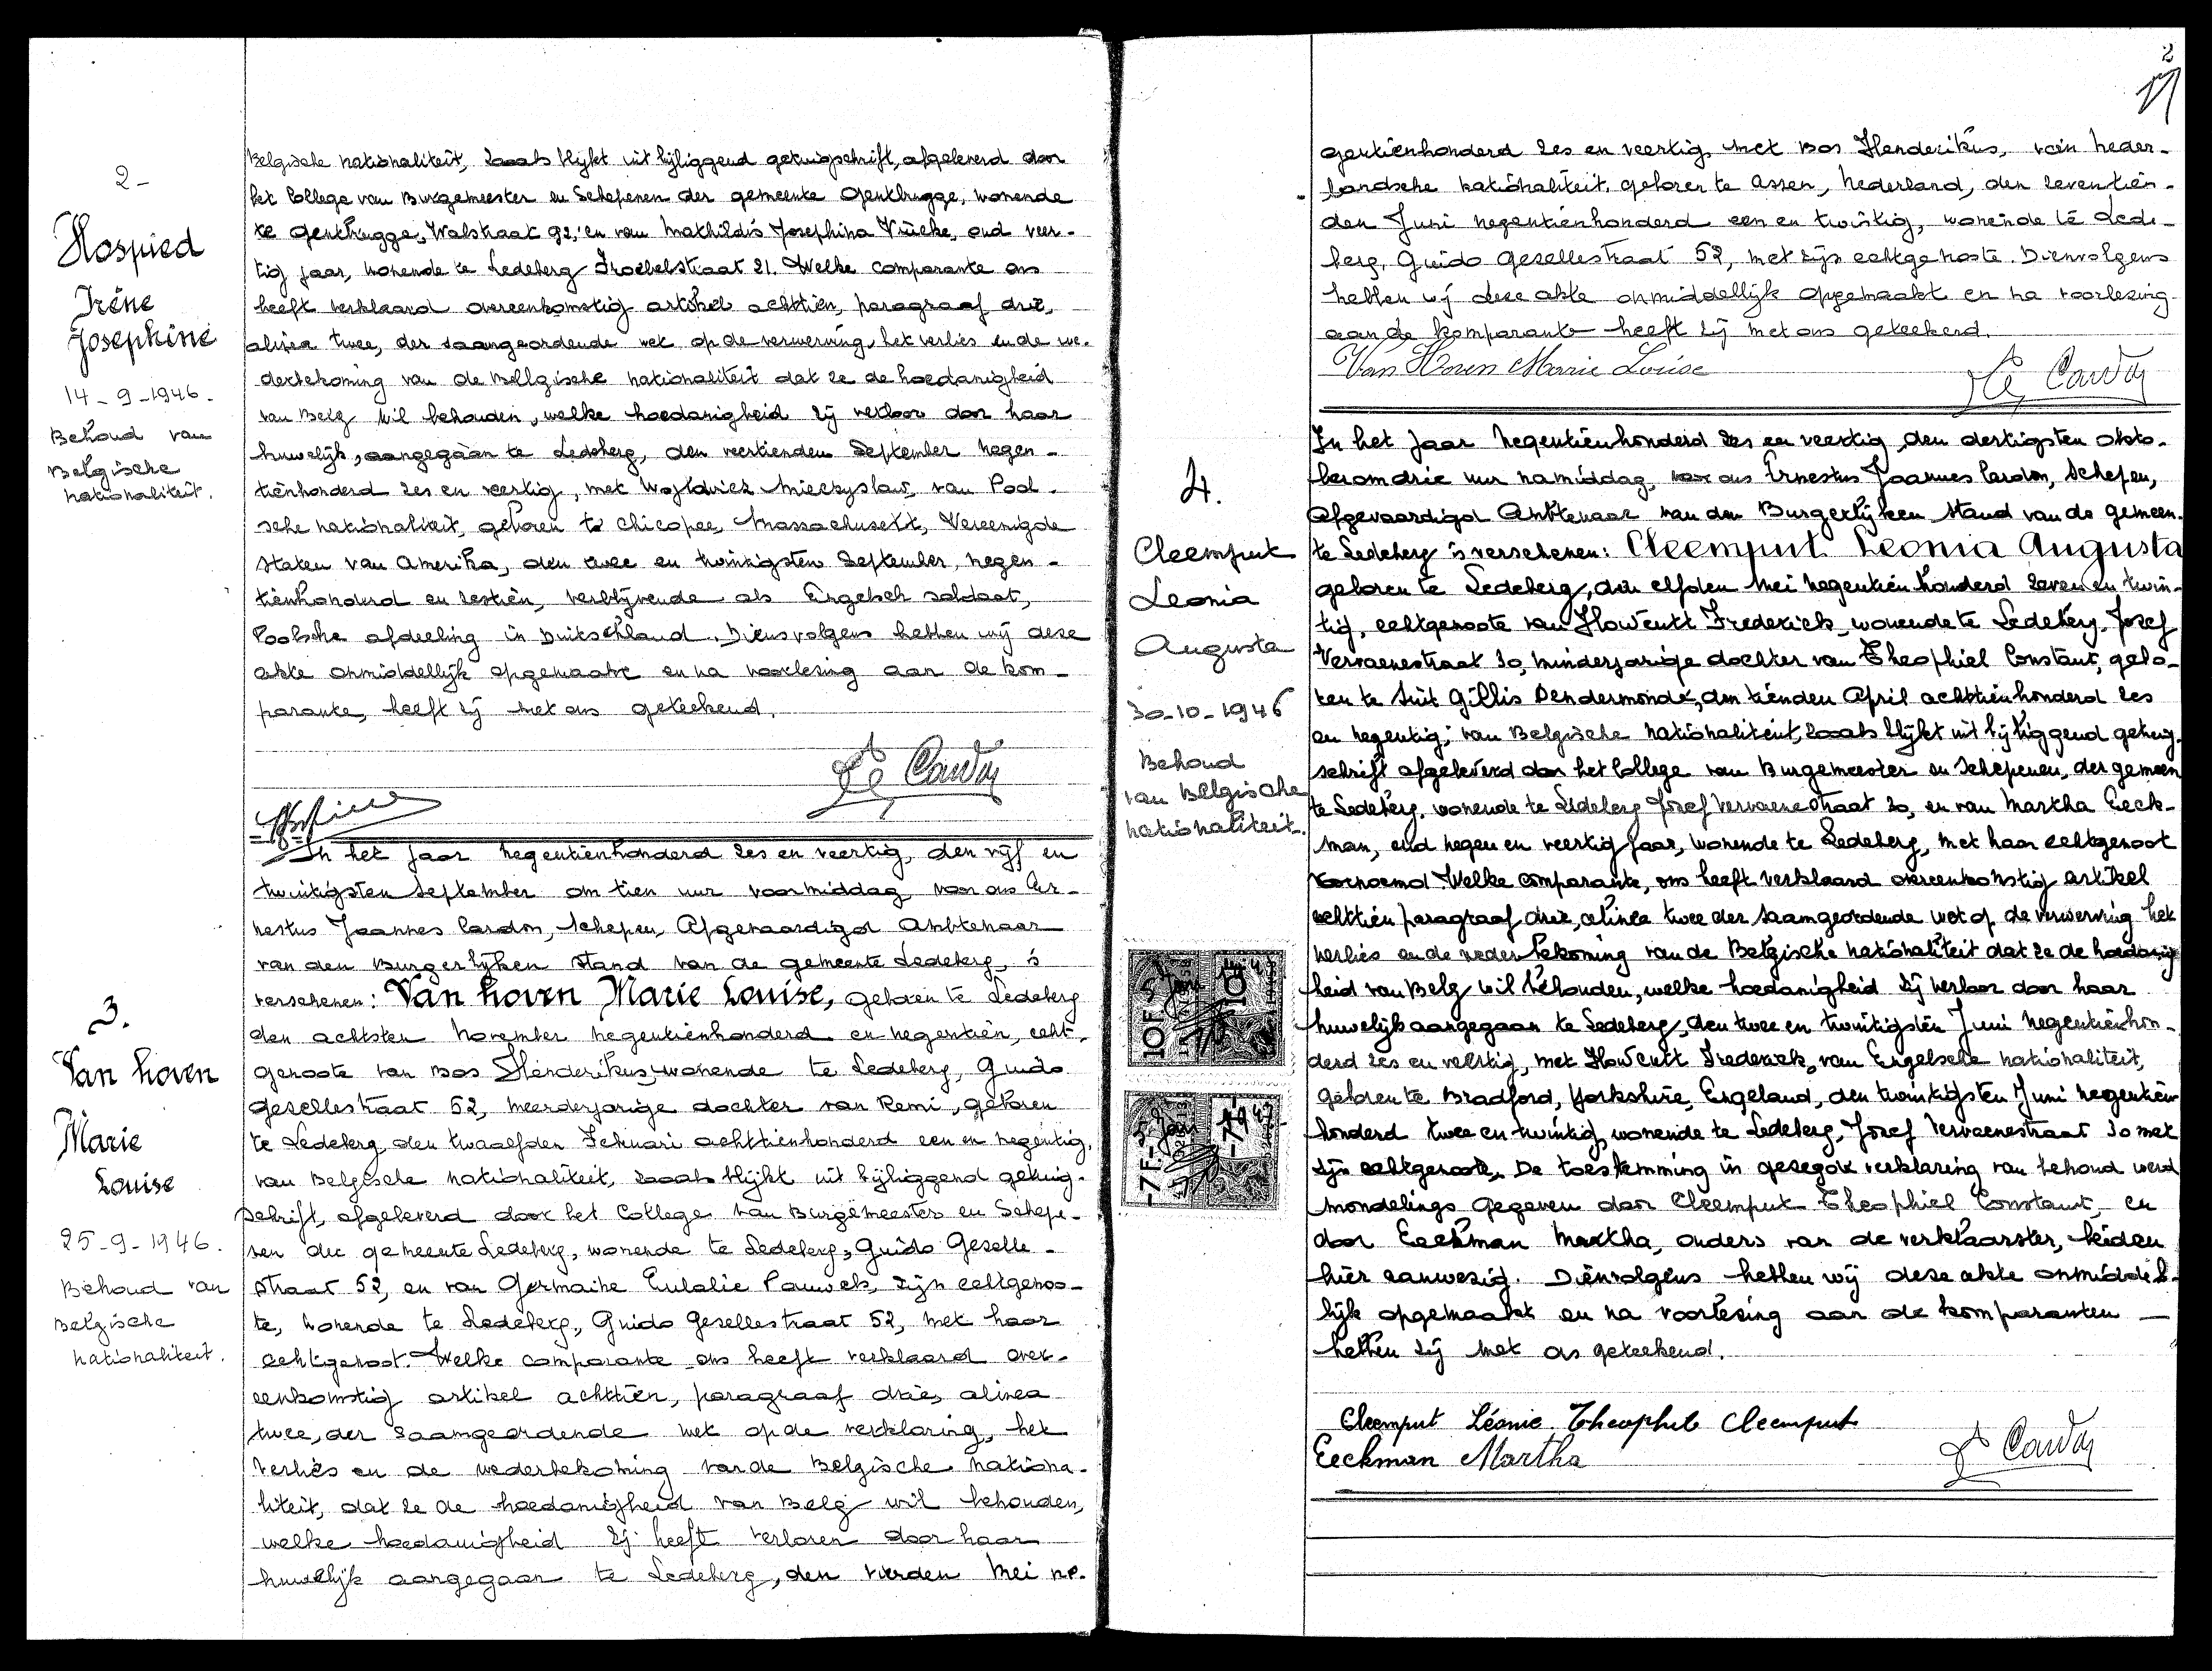 2-
Hospied
Irène
Josephine
14-9-1946.
Behoud van
Belgische
nationaliteit.
Belgische nationaliteit, zooals blijkt uit bijliggend getuigschrift, afgeleverd door
het College van Burgemeester en Schepenen der gemeente Gentbrugge, wonende
te Gentbrugge, Walstraat 92, en van Mathildis Josephina Vrücke, oud veer-
tig jaar, wonende te Ledeberg Froebelstraat 21. Welke comparante ons
heeft verklaard overeenkomstig artikel achttien, paragraaf drie,
alinea twee, der saamgeordende wet op de verwerving, het verlies en de we-
derbekoming van de Belgische nationaliteit dat ze de hoedanigheid
van Belg wil behouden, welke hoedanigheid zij verloor door haar
huwelijk, aangegaan te Ledeberg, den veertienden September negen-
tienhonderd zes en veertig, met Wojdwicz Mieczyslaw, van Pool-
sche nationaliteit, geboren te Chicopee, Massachusett, Vereenigde
Staten van Amerika, den twee en twintigsten September, negen-
tienhonderd en zestien, verblijvende als Engelsch soldaat,
Poolsche afdeeling in Duitschland. Diensvolgens hebben wij deze
akte onmiddellijk opgemaakt en na voorlezing aan de kom-
parante, heeft zij met ons geteekend.
In het jaar negentienhonderd zes en veertig, den vijf en
twintigsten September om tien uur voormiddag voor ons Er-
nestus Joannes Cardon, Schepen, Afgevaardigd Ambtenaar
van den Burgerlijken Stand van de gemeente Ledeberg, is
verschenen: Van hoven Marie Louise, geboren te Ledeberg
den achtsten November negentienhonderd en negentien, echt-
genoote van Bos Henderikus, wonende te Ledeberg, Guido
Gesellestraat 52, meerderjarige dochter van Remi, geboren
te Ledeberg den twaalfden Februari achttienhonderd een en negentig,
van Belgische nationaliteit, zooals blijkt uit bijliggend getuig-
schrift, afgeleverd door het College van Burgemeester en Schepe-
nen der gemeente Ledeberg, wonende te Ledeberg, Guido Geselle-
straat 52, en van Germaine Eulalie Pauwels, zijn echtgenoo-
te, wonende te Ledeberg, Guido Gesellestraat 52, met haar
echtgenoot. Welke comparante ons heeft verklaard over-
eenkomstig artikel achttien, paragraaf drie, alinea
twee, der saamgeordende wet op de verklaring, het
verlies en de wederbekoming van de Belgische nationa-
liteit, dat ze de hoedanigheid van Belg wil behouden,
welke hoedanigheid zij heeft verloren door haar
huwelijk aangegaan te Ledeberg, den vierden Mei ne-
3.
Van hoven
Marie
Louise
25-9-1946.
Behoud van
Belgische
nationaliteit.
2
gentienhonderd zes en veertig met Bos Henderikus, van Neder-
landsche nationaliteit, geboren te Assen, Nederland, den zeventien-
den Juni negentienhonderd een en twintig, wonende te Lede-
berg, Guido Gesellestraat 52, met zijn echtgenoote. Dienvolgens
hebben wij deze akte onmiddellijk opgemaakt en na voorlezing
aan de komparante heeft zij met ons geteekend.
Van Hoven Marie Louise
Cardon
4.
Cleemput
Leonia
Augusta
30-10-1946
Behoud
van Belgische
nationaliteit.
In het jaar negentienhonderd zes en veertig den dertigsten okto-
ber om drie uur namiddag, voor ons Ernestus Joannes Cardon, Schepen,
Afgevaardigd Ambtenaar van den Burgerlijken Stand van de gemeen-
te Ledeberg is verschenen: Cleemput Leonia Augusta
geboren te Ledeberg, den elfden Mei negentienhonderd zeven en twin-
tig, echtgenoote van Howcutt Frederick, wonende te Ledeberg, Jozef
Vervaenestraat 30, minderjarige dochter van Theophiel Constant, gebo-
ren te Sint Gillis Dendermonde, den tienden April achttienhonderd zes
en negentig, van Belgische nationaliteit, zooals blijkt uit bijliggend getuig-
schrift afgeleverd door het College van Burgemeester en Schepenen, der gemeen
te Ledeberg, wonende te Ledeberg Jozef Vervaenestraat 30, en van Martha Eeck-
man, oud negen en veertig jaar, wonende te Ledeberg, met haar echtgenoot
voornoemd. Welke comparante, ons heeft verklaard overeenkomstig artikel
achttien paragraaf drie, alinea twee der saamgeordende wet op de verwerving het
verlies en de wederbekoming van de Belgische nationaliteit dat ze de hoedanig
heid van Belg wil behouden, welke hoedanigheid zij verloor door haar
huwelijk aangegaan te Ledeberg, den twee en twintigsten Juni negentienhon-
derd zes en veertig, met Howcutt Frederick, van Engelsche nationaliteit,
geboren te Bradford, Yorkshire, Engeland, den twintigsten Juni negentien
honderd twee en twintig, wonende te Ledeberg, Jozef Vervaenestraat 30 met
zijn echtgenoote. De toestemming in gezegde verklaring van behoud werd
mondelings gegeven door Cleemput Theophiel Constant, en
door Eeckman Martha, ouders van de verklaarster, beiden
hier aanwezig. Dienvolgens hebben wij deze akte onmiddel-
lijk opgemaakt en na voorlezing aan de komparanten
hebben zij met ons geteekend.
10F 10F
-7F- -7F-
Cleemput Léonie Theophile Cleemput
Eeckman Martha
Cardon